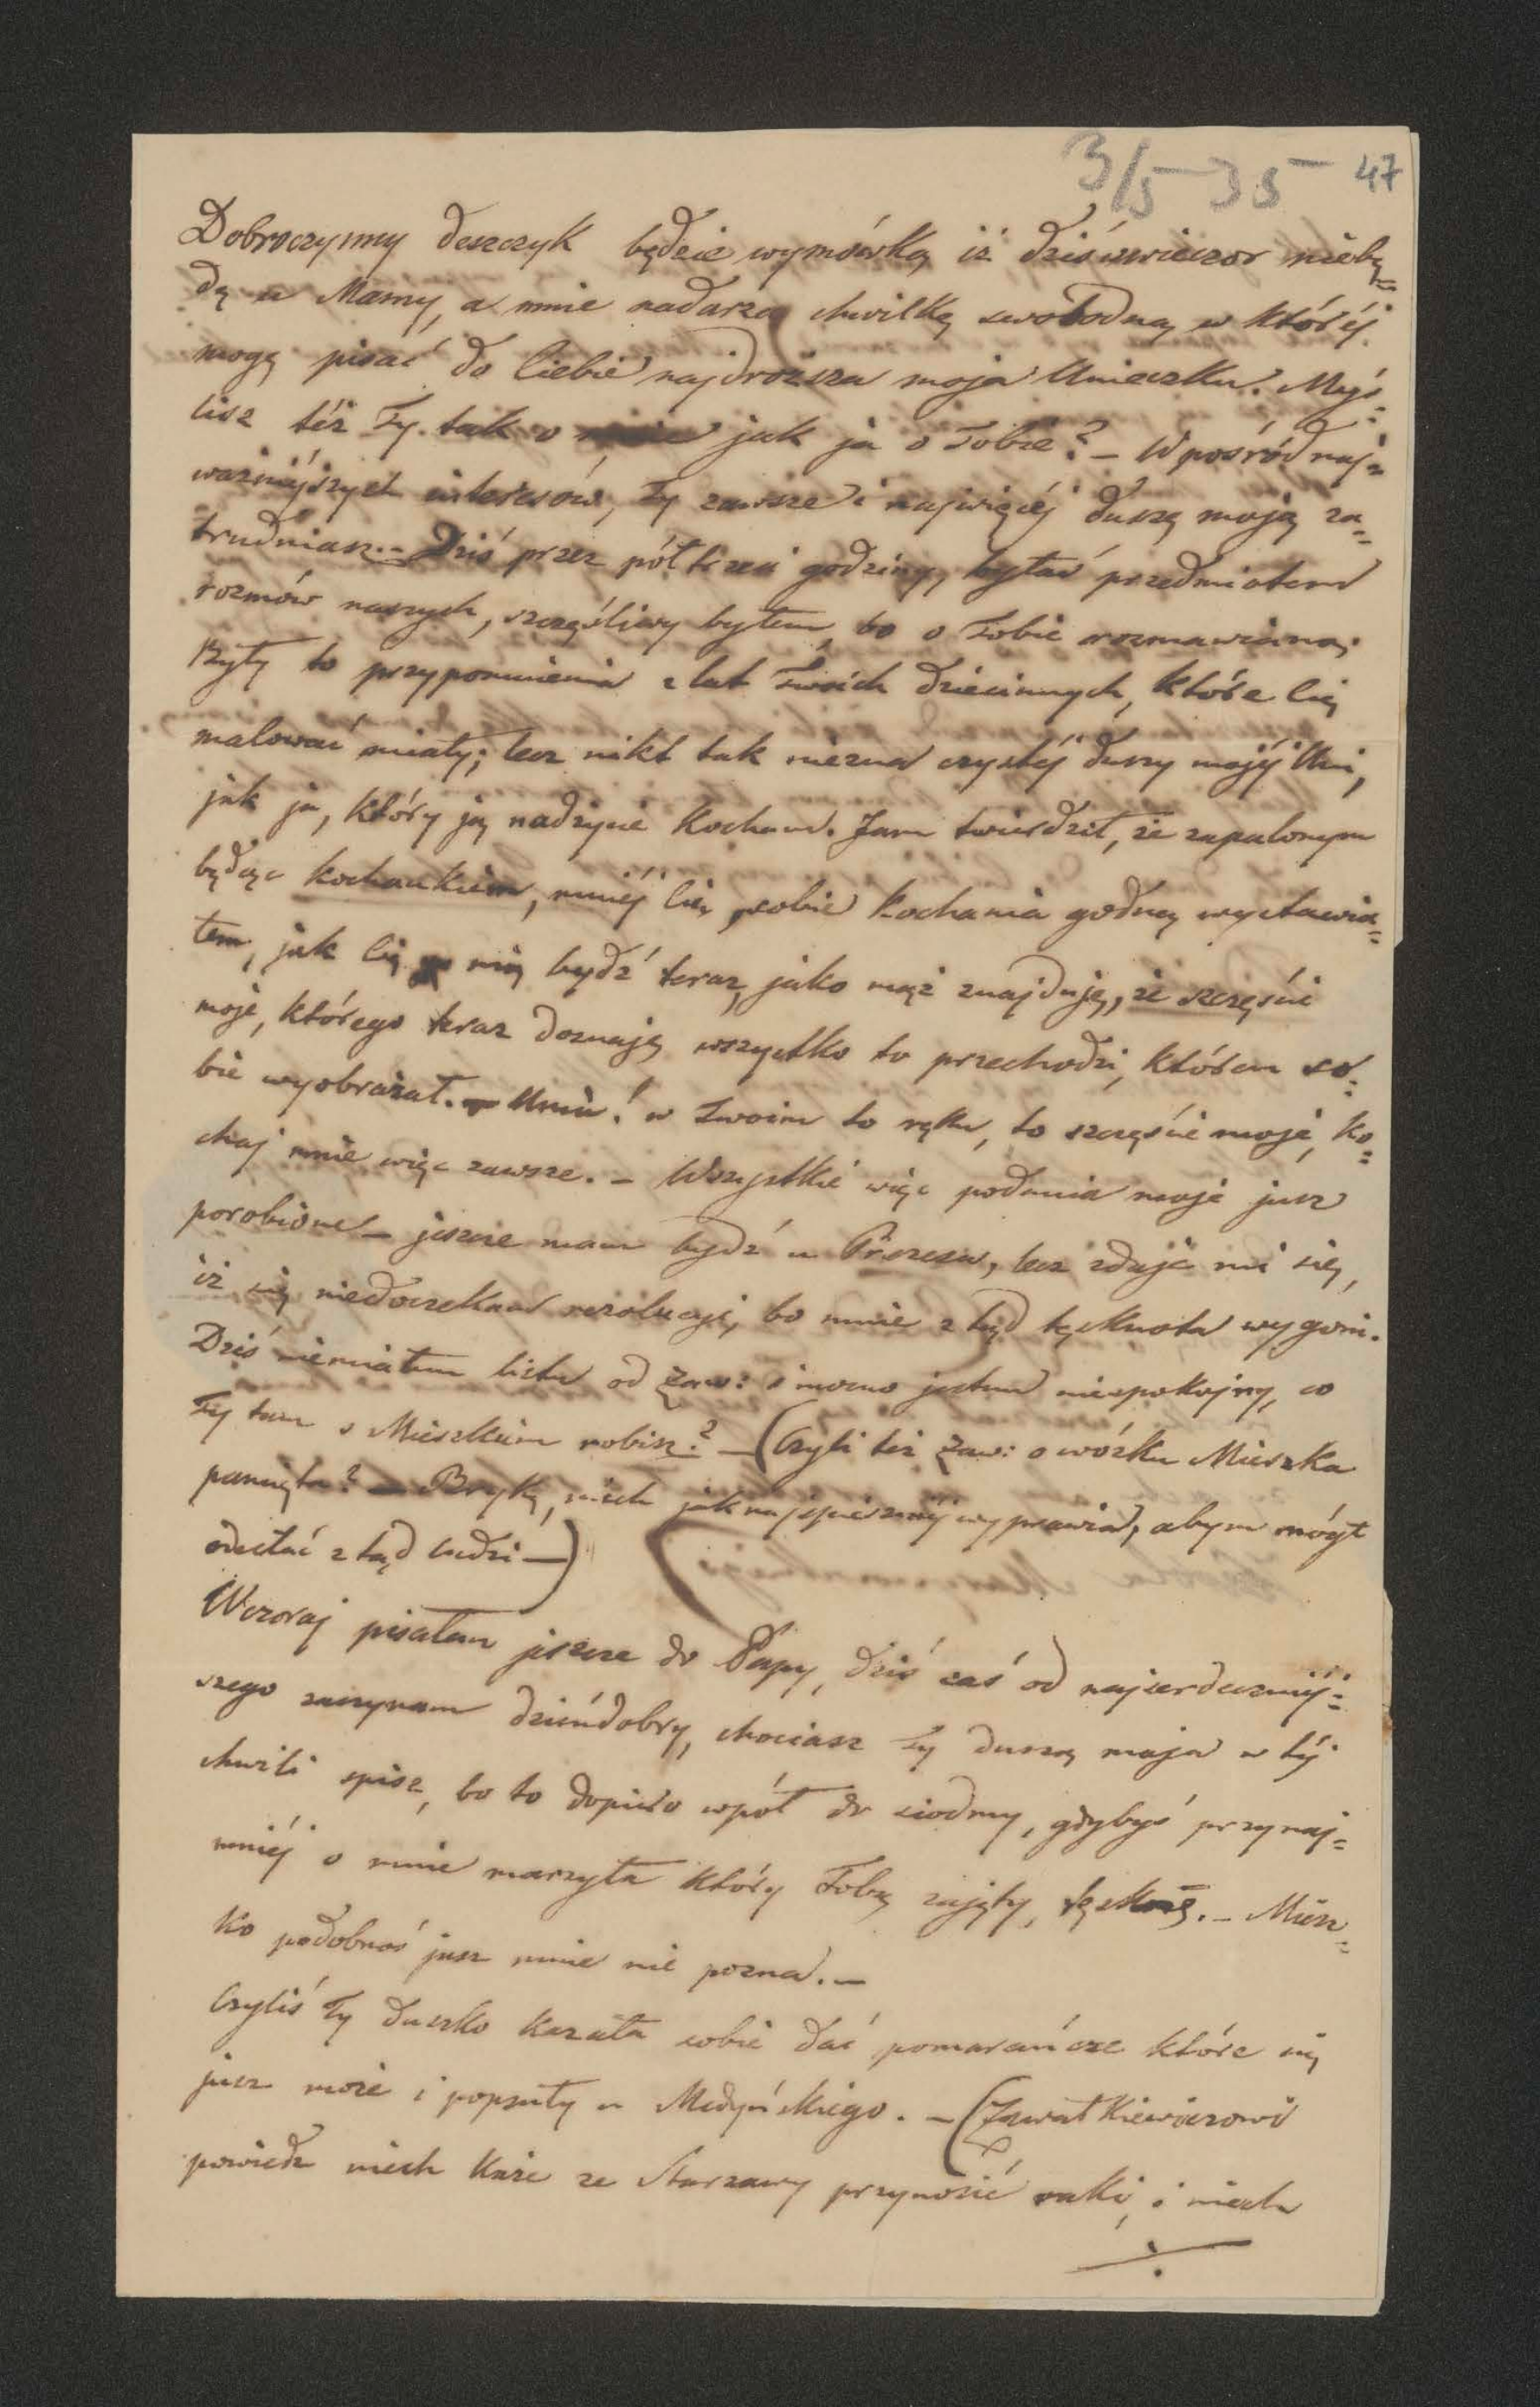 3/5 35 47
Dobroczynny deszczyk będzie wymówką iż dziświeczor niebę=
dę u Mamy, a mnie nadarza chwilkę swobodną w któréj
mogę pisać do Ciebie najdroższa moja Unieczku. Myś=
lisz téż Ty tak o mnie jak ja o Tobie? – W pośród naj=
ważniéjszych interesów, Ty zawsze i najwięcéj duszę moją za=
trudniasz. – Dziś przez półtrzeci godziny, byłaś przedmiotem
rozmów naszych, szczęśliwy byłem, bo o Tobie rozmawiano.
Były to przypomnienia z lat Twoich dziecinnych, które Cię
malować miały; lecz nikt tak niezna czystéj duszy mojéj Uni,
jak ja, który ją nadżycie kocham. Jam twierdził, że zapalonym
będąc kochankiem, mniéj Cię sobie kochania godną wystawia=
łem, jak Cię nią bydź teraz, jako mąż znajduję, że szczęście
moje, którego teraz doznaję wszystko to przechodzi, którem so=
bie wyobrażał. – Uniu! w Twoim to ręku, to szczęście moje, ko=
chaj mnie więc zawsze. – Wszystkie więc podania moje jusz
porobione – jeszcze mam bydź u Prezesa, lecz zdaje mi się,
iż się niedoczekam rezolucyi, bo mnie z tąd tęsknota wygoni.
Dziś niemiałem listu od Zaw: i mocno jestem niespokojny, co
Ty tam z Mieszkiem robisz? – (Czyli też Zaw: o wózku Mieszka
pamięta? – Brykę, niech jaknajspieszniéj wyprawia, abym mógł
odesłać z tąd ludzi –)
Wczoraj pisałem jeszcze do Papy, dziś zaś od najserdeczniéj=
szego zaczynam dzieńdobry, chociasz Ty duszą moja w téj
chwili spisz, bo to dopiéro wpół do siodmy, gdybyś przynaj=
mniéj o mnie marzyła który Tobą zajęty, tęsknię. – Miesz=
ko podobnoś jusz mnie nie pozna. –
Czyliś Ty duszko kazała sobie dać pomarańcze które się
jusz może i popsuły u Medyńskiego. – (Zawałkiewiczowi
powiedz niech każe ze Starzawy przynosić raki, i niech
÷